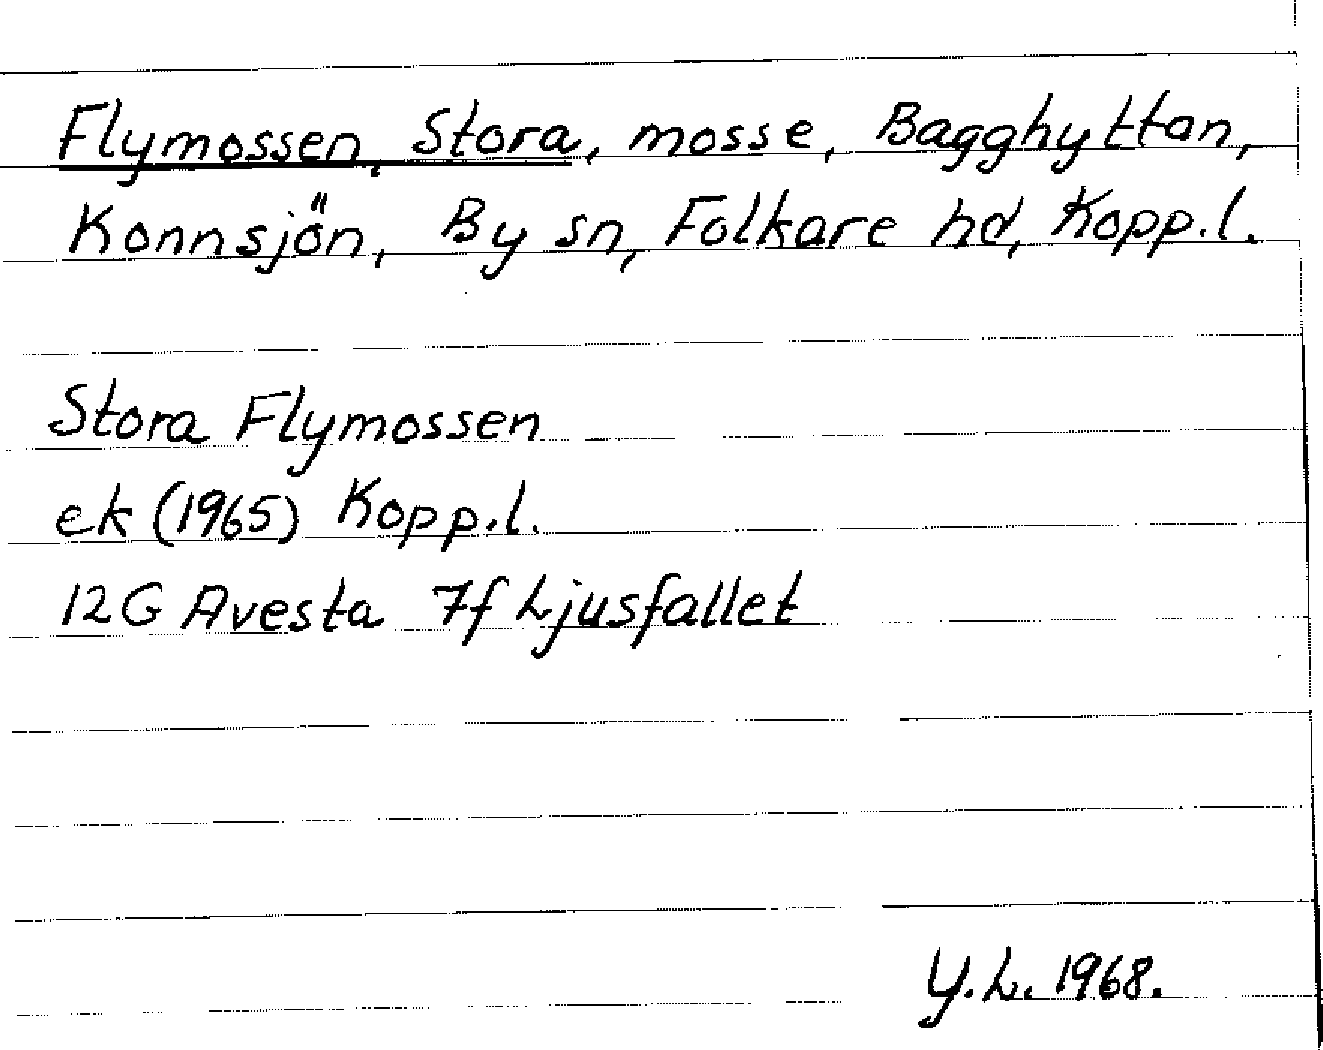 Flymossen, Stora, mosse, Bagghyttan,
Konnsjön, By sn, Folkare hd, Kopp.l.
Stora Flymossen
ek (1965) Kopp.l.
12G Avesta 7f Ljusfallet
Y.L. 1968.